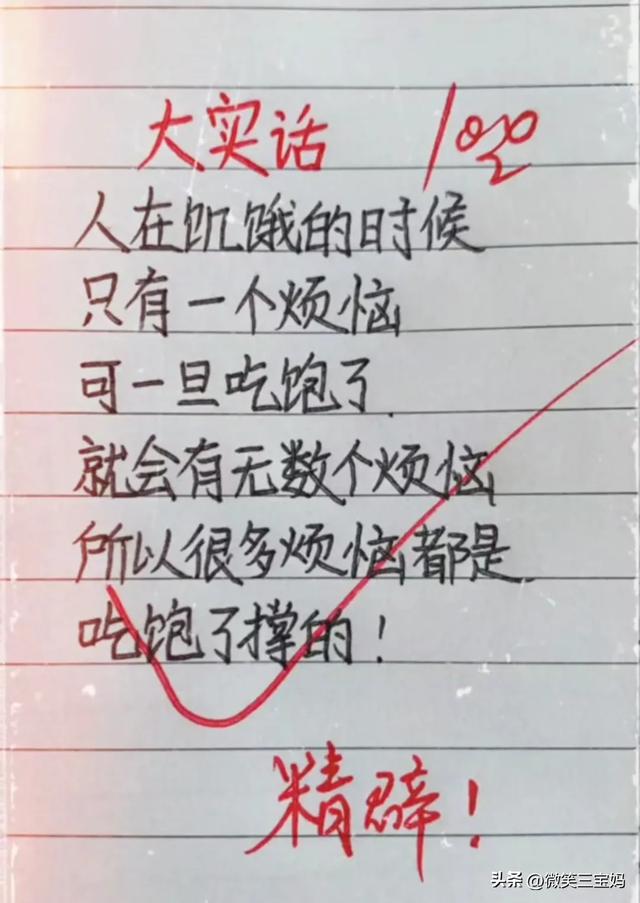 大实话 100
人在饥饿的时候
只有一个烦恼
可一旦吃饱了
就会有无数个烦恼
所以很多烦恼都是
吃饱了撑的！
精辟！
头条 @微笑三宝妈